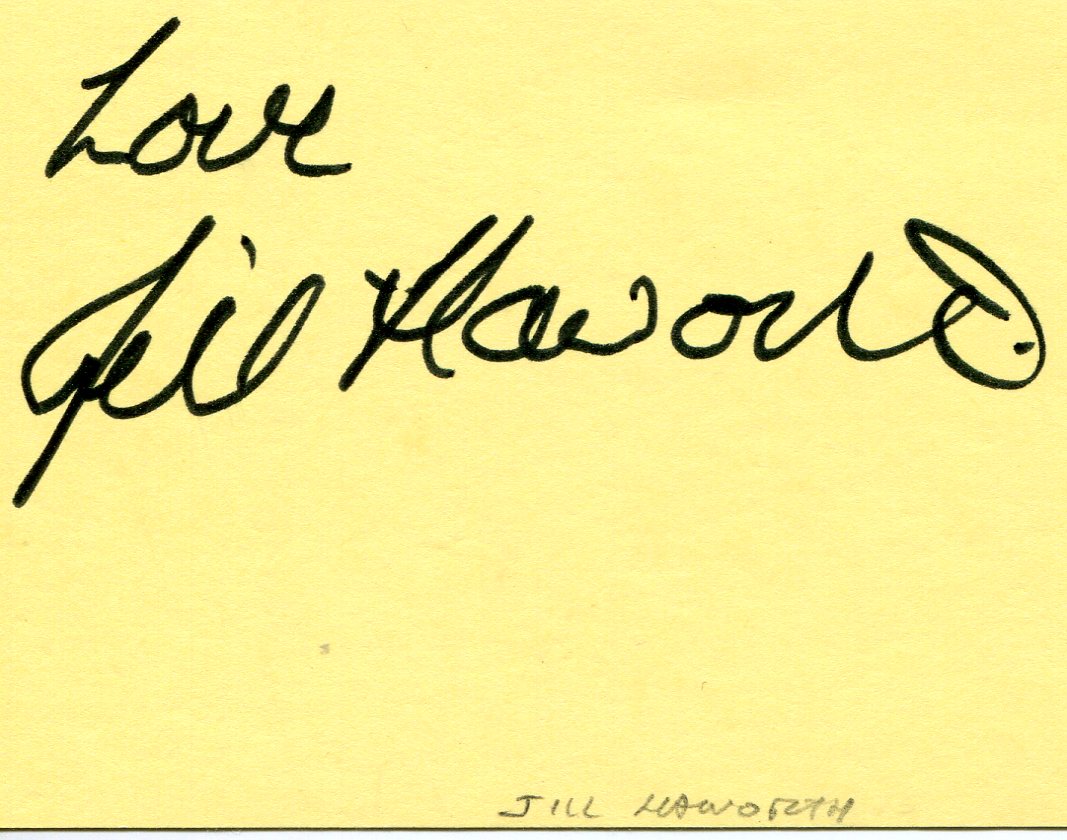 Love
Jill Haworth
JILL HAWORTH